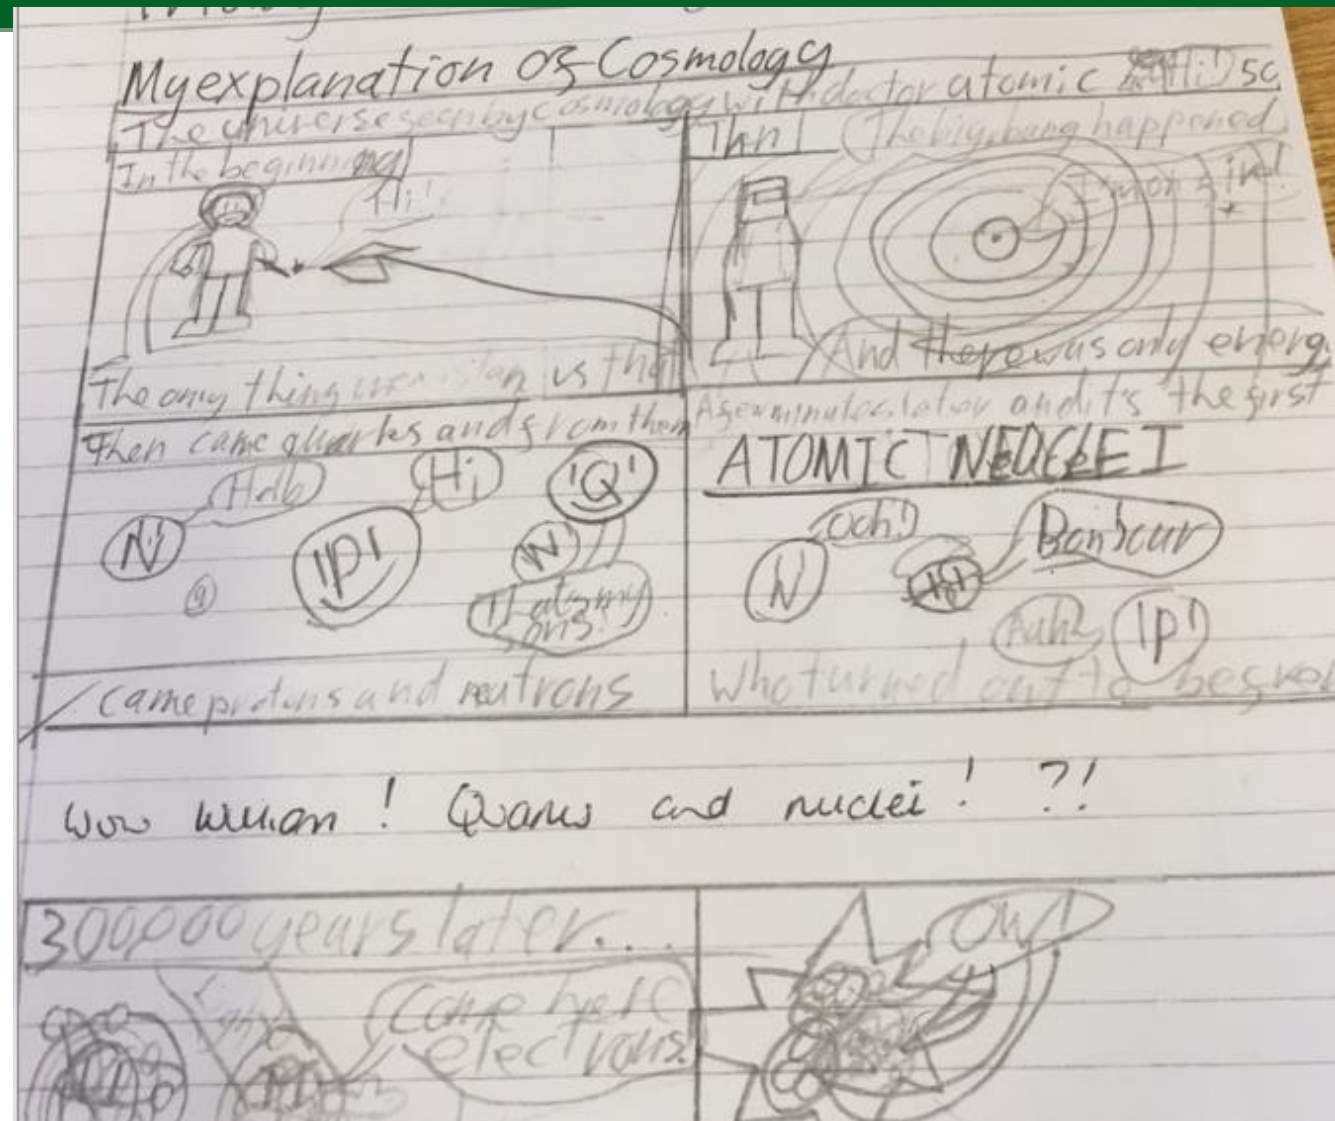 My explanation of Cosmology
The universe seen by cosmology with doctor atomic Hi!
In the beginning
Hi!
The only thing is that
The big bang happened
And there was only energ
Then came quarks and from them
Hi
'Q'
N
'P'
N
q
came protons and neutrons
A few minutes later and it's the first
ATOMIC
Ooh!
N
Bonjour
'P'
Who turned out to be
wow ! Quarks and nuclei ! ?!
300,000 years later...
Come here
electrons!
OW!